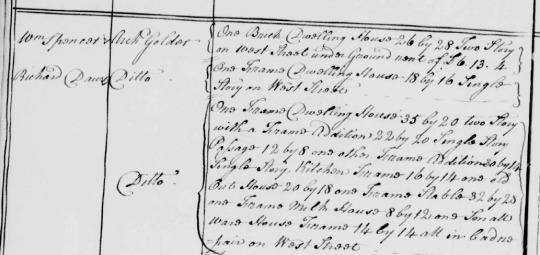 Wm Spencer & Arch Golder
One Brick Dwelling House 26 by 28 Two Story
on West Street under Ground rent of £6.13.4
Richard Daws Ditto
One Frame Dwelling House 18 by 16 Single
Story on West Street
Ditto
One Frame Dwelling House 35 by 20 two Story
with a Frame Addition 22 by 20 Single Story
Passage 12 by 8 one other Frame Addition 20 by 14
Single Story, Kitchen Frame 16 by 14 one old
Out House 20 by 18 one Frame Stable 32 by 28
one Frame Milk House 8 by 12 one Small
Ware House Frame 14 by 14 all in bad re
-pair on West Street